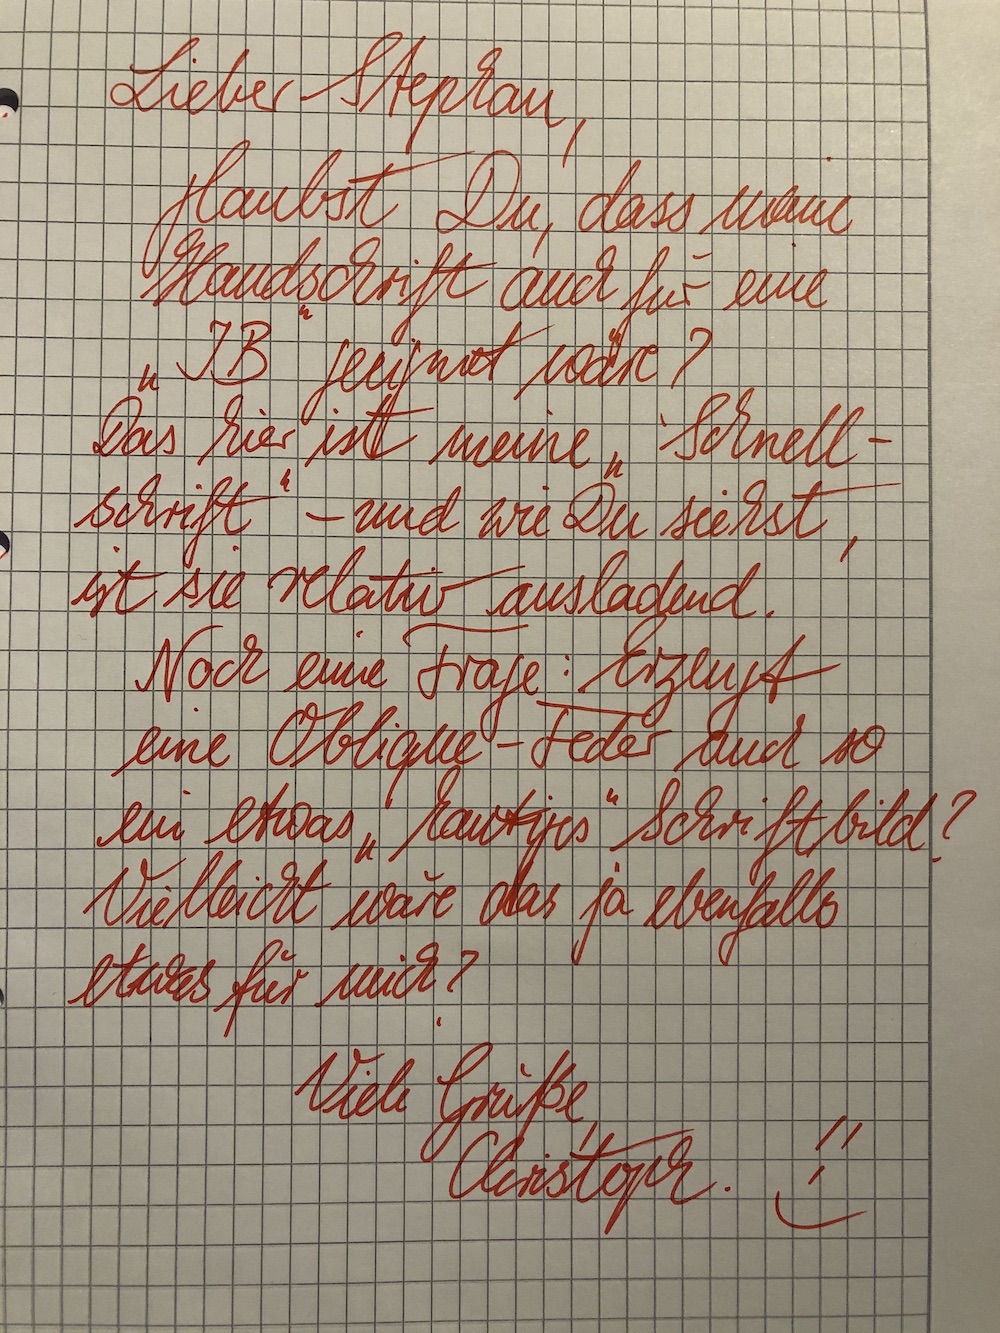 Lieber Stephan,
glaubst Du, dass meine
Handschrift auch für eine
„IB“ geeignet wäre?
Das hier ist meine „Schnell-
schrift“ – und wie Du siehst,
ist sie relativ ausladend.
Noch eine Frage: Erzeugt
eine Oblique-Feder auch so
ein etwas „kantiges“ Schriftbild?
Vielleicht wäre das ja ebenfalls
etwas für mich?
Viele Grüße,
Christoph.